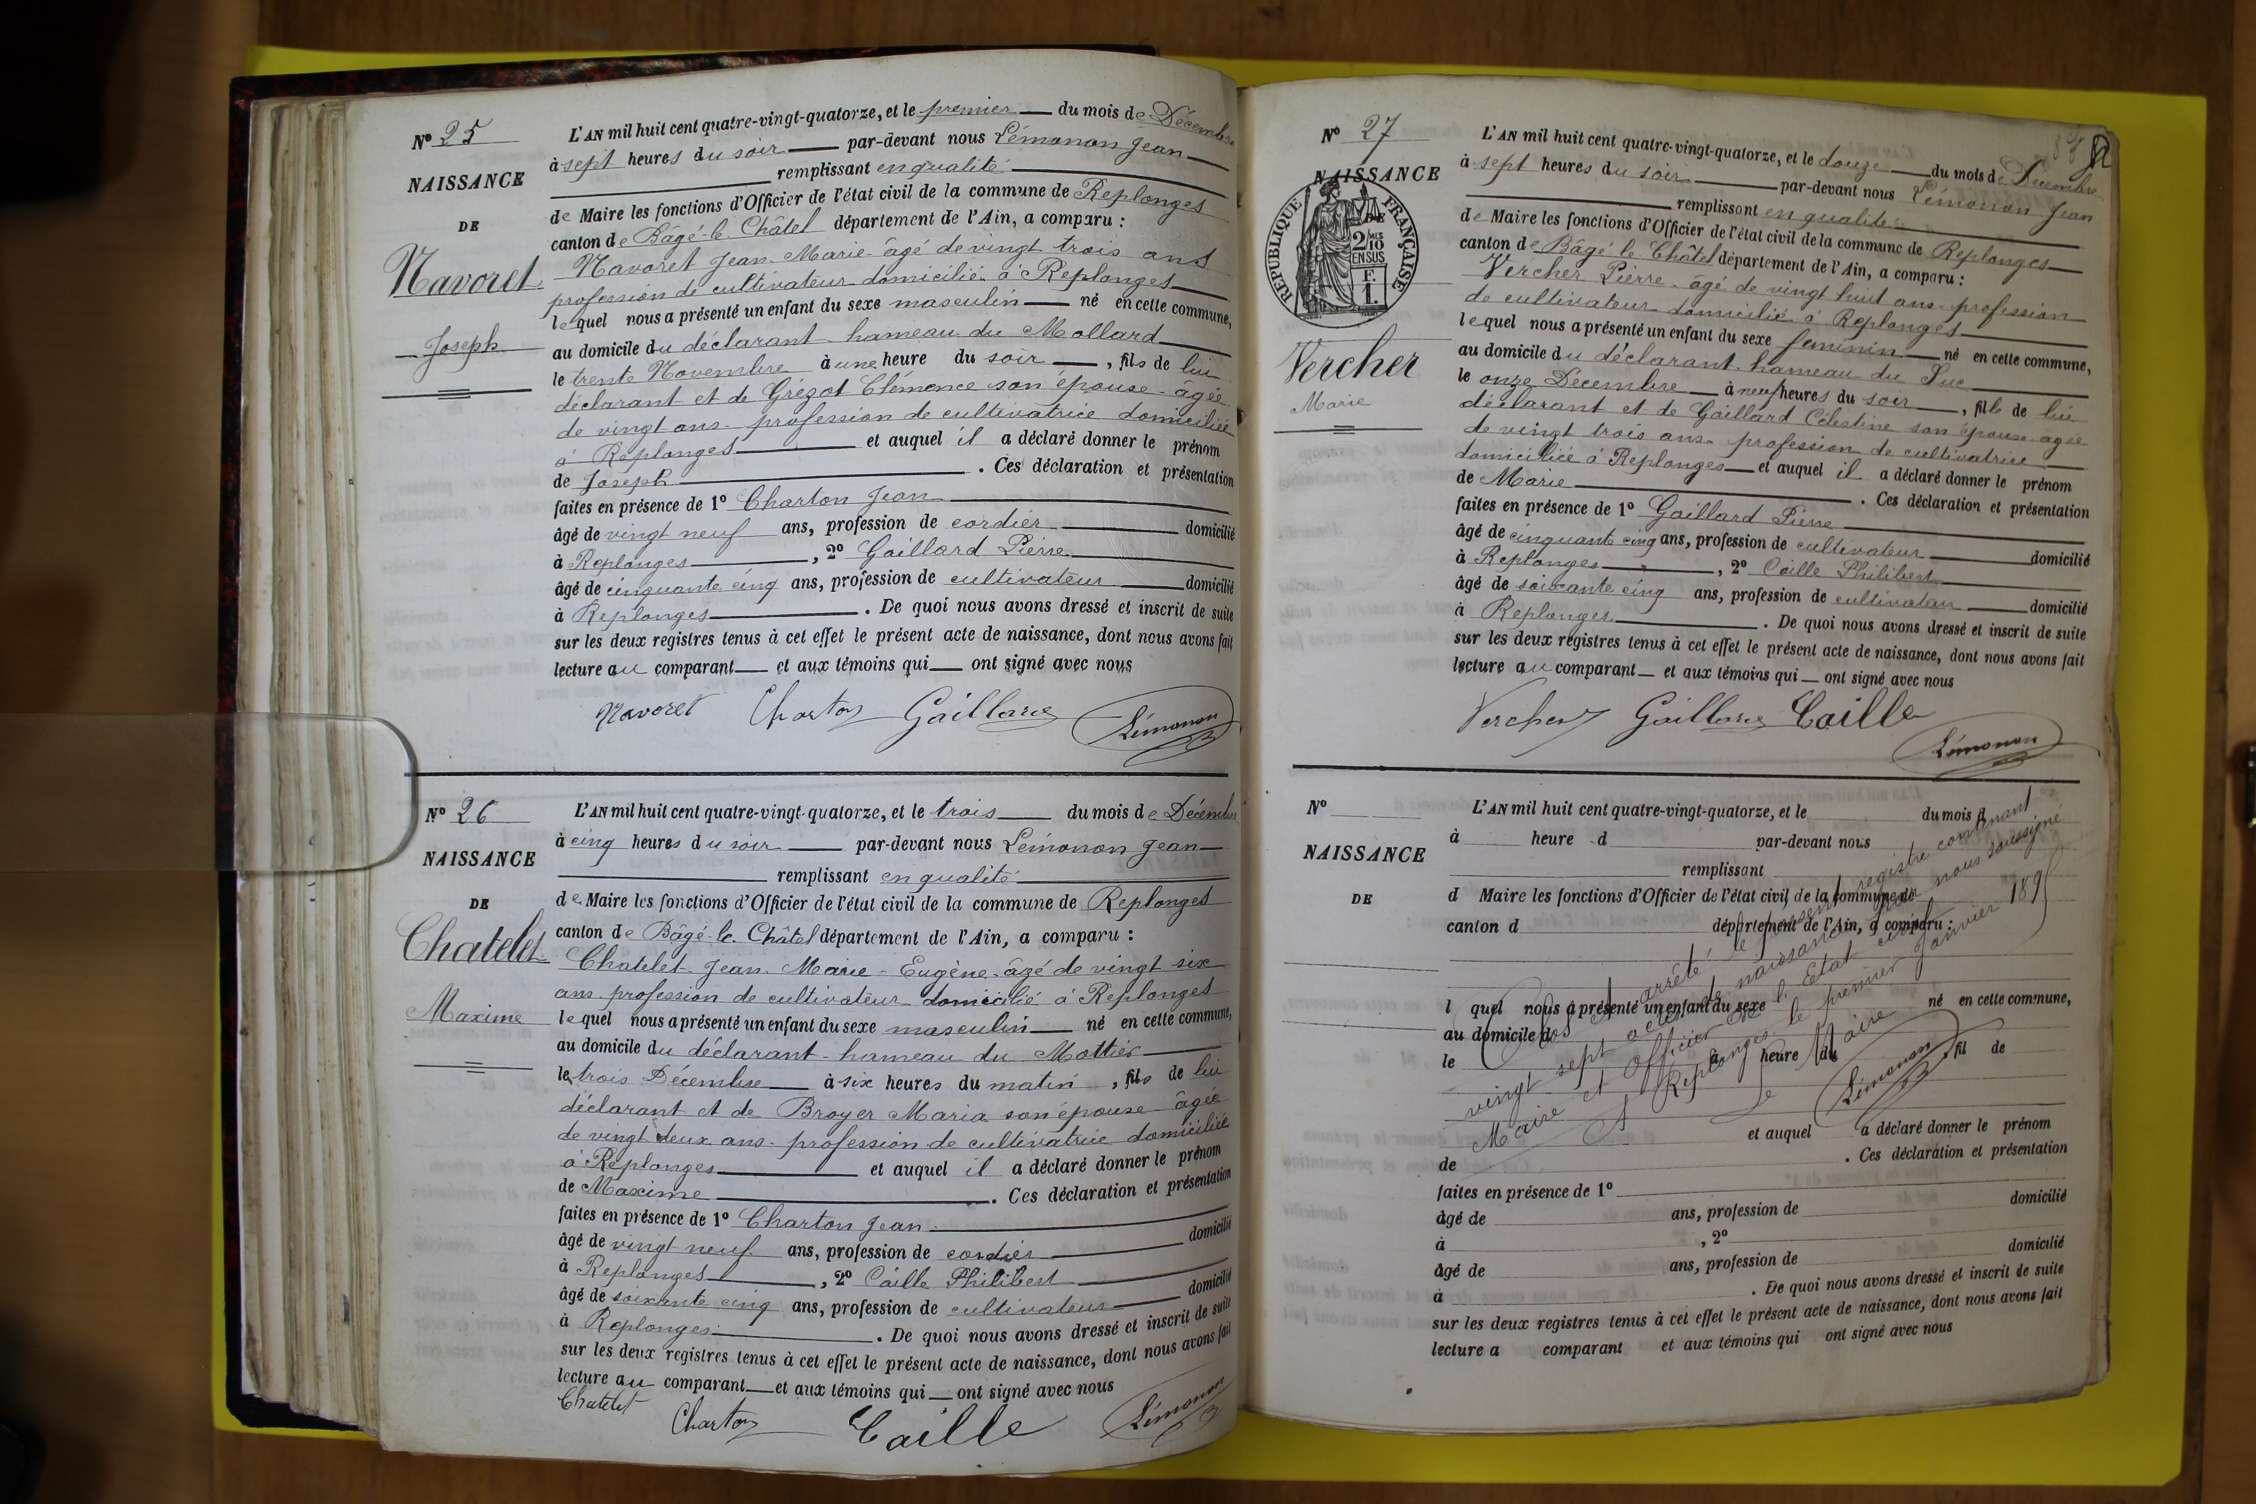 N° 25
NAISSANCE
DE
Navoret
Joseph
L'AN mil huit cent quatre-vingt-quatorze, et le premier du mois de Décembre
à sept heures du soir par-devant nous Lémonon Jean
remplissant en qualité
de Maire les fonctions d'Officier de l'état civil de la commune de Replonges
canton de Bâgé-le-Châtel département de l'Ain, a comparu :
Navoret Jean-Marie âgé de vingt trois ans
profession de cultivateur domicilié à Replonges
lequel nous a présenté un enfant du sexe masculin né en cette commune,
au domicile du déclarant hameau du Mollard
le trente Novembre à une heure du soir, fils de lui
déclarant et de Grézot Clémence son épouse âgée
de vingt ans profession de cultivatrice domiciliée
à Replonges et auquel il a déclaré donner le prénom
de Joseph. Ces déclaration et présentation
faites en présence de 1° Charton Jean
âgé de vingt neuf ans, profession de cordier domicilié
à Replonges, 2° Gaillard Pierre
âgé de cinquante cinq ans, profession de cultivateur domicilié
à Replonges. De quoi nous avons dressé et inscrit de suite
sur les deux registres tenus à cet effet le présent acte de naissance, dont nous avons fait
lecture au comparant et aux témoins qui ont signé avec nous
Navoret Charton Gaillard Lémonon
N° 26
NAISSANCE
DE
Chatelet
Maxime
L'AN mil huit cent quatre-vingt-quatorze, et le trois du mois de Décembre
à cinq heures du soir par-devant nous Lémonon Jean
remplissant en qualité
de Maire les fonctions d'Officier de l'état civil de la commune de Replonges
canton de Bâgé-le-Châtel département de l'Ain, a comparu :
Chatelet Jean-Marie-Eugène âgé de vingt six
ans profession de cultivateur domicilié à Replonges
lequel nous a présenté un enfant du sexe masculin né en cette commune,
au domicile du déclarant hameau du Mottier
le trois Décembre à six heures du matin, fils de lui
déclarant et de Broyer Maria son épouse âgée
de vingt deux ans profession de cultivatrice domiciliée
à Replonges et auquel il a déclaré donner le prénom
de Maxime. Ces déclaration et présentation
faites en présence de 1° Charton Jean
âgé de vingt neuf ans, profession de cordier domicilié
à Replonges, 2° Caille Philibert
âgé de soixante cinq ans, profession de cultivateur domicilié
à Replonges. De quoi nous avons dressé et inscrit de suite
sur les deux registres tenus à cet effet le présent acte de naissance, dont nous avons fait
lecture au comparant et aux témoins qui ont signé avec nous
Chatelet Charton Caille Lémonon
N° 27
NAISSANCE
DE
RÉPUBLIQUE FRANÇAISE
2/10 MES
EN SUS
F.
1.
Vercher
Marie
L'AN mil huit cent quatre-vingt-quatorze, et le douze du mois de Décembre
à sept heures du soir par-devant nous Lémonon Jean
remplissant en qualité
de Maire les fonctions d'Officier de l'état civil de la commune de Replonges
canton de Bâgé le Châtel département de l'Ain, a comparu :
Vercher Pierre âgé de vingt huit ans profession
de cultivateur domicilié à Replonges
lequel nous a présenté un enfant du sexe féminin né en cette commune,
au domicile du déclarant hameau du Suc
le onze Décembre à neuf heures du soir, fille de lui
déclarant et de Gaillard Célestine son épouse âgée
de vingt trois ans profession de cultivatrice
domiciliée à Replonges et auquel il a déclaré donner le prénom
de Marie. Ces déclaration et présentation
faites en présence de 1° Gaillard Pierre
âgé de cinquante cinq ans, profession de cultivateur domicilié
à Replonges, 2° Caille Philibert
âgé de soixante cinq ans, profession de cultivateur domicilié
à Replonges. De quoi nous avons dressé et inscrit de suite
sur les deux registres tenus à cet effet le présent acte de naissance, dont nous avons fait
lecture au comparant et aux témoins qui ont signé avec nous
Vercher Gaillard Caille
Lémonon
N°
NAISSANCE
DE
L'AN mil huit cent quatre-vingt-quatorze, et le du mois d
à heure d par-devant nous
remplissant
d Maire les fonctions d'Officier de l'état civil de la commune de
canton d département de l'Ain, a comparu :
l quel nous a présenté un enfant du sexe né en cette commune,
au domicile d
le à heure du fil de
et auquel a déclaré donner le prénom
de . Ces déclaration et présentation
faites en présence de 1°
âgé de ans, profession de domicilié
à , 2°
âgé de ans, profession de domicilié
à . De quoi nous avons dressé et inscrit de suite
sur les deux registres tenus à cet effet le présent acte de naissance, dont nous avons fait
lecture a comparant et aux témoins qui ont signé avec nous
Clos et arrêté le présent registre contenant
vingt sept actes de naissance par nous soussigné
Maire et Officier de l'Etat civil
A Replonges le premier Janvier 1895
Le Maire
Lémonon